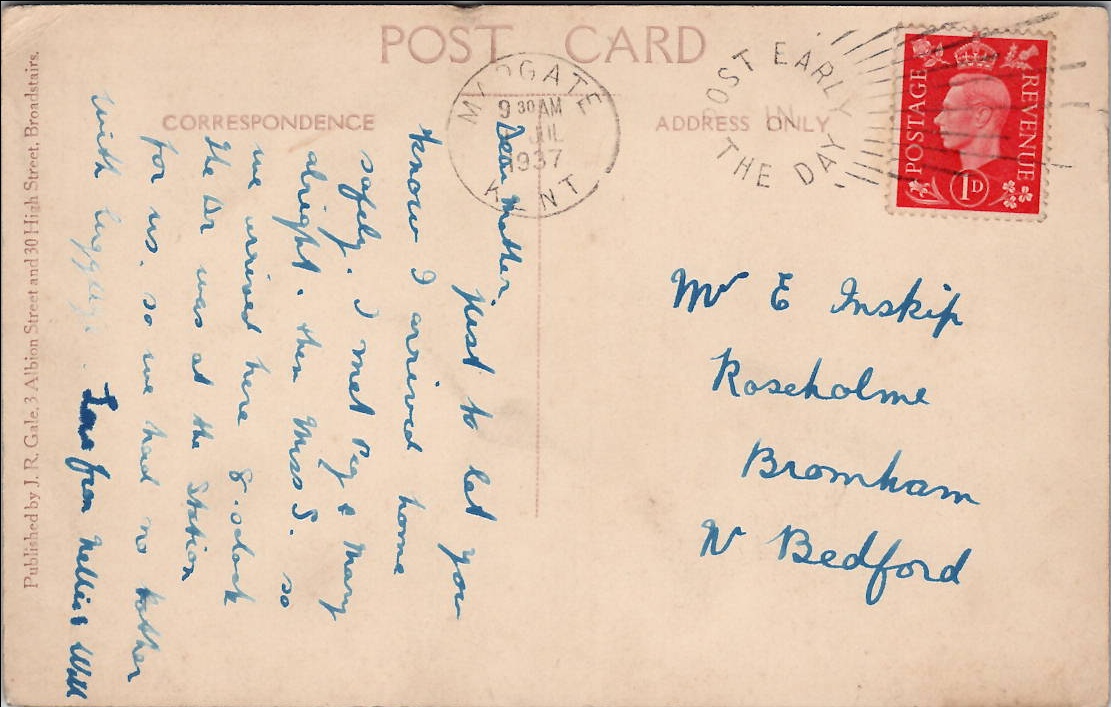 POST CARD
CORRESPONDENCE
ADDRESS ONLY
MARGATE
9 30 AM
JUL
1937
KENT
POST EARLY
IN
THE DAY
POSTAGE
REVENUE
1D
Dear Mother
just to let you
know I arrived home
safely. I met Peg & Mary
alright. then Miss S. so
we arrived here 8.oclock
the Dr was at the Station
for us. so we had no bother
with luggage.
Love from Nellie & Will
Mr E Inskip
Roseholme
Bromham
Nr Bedford
Published by J. R. Gale, 3 Albion Street and 30 High Street, Broadstairs.